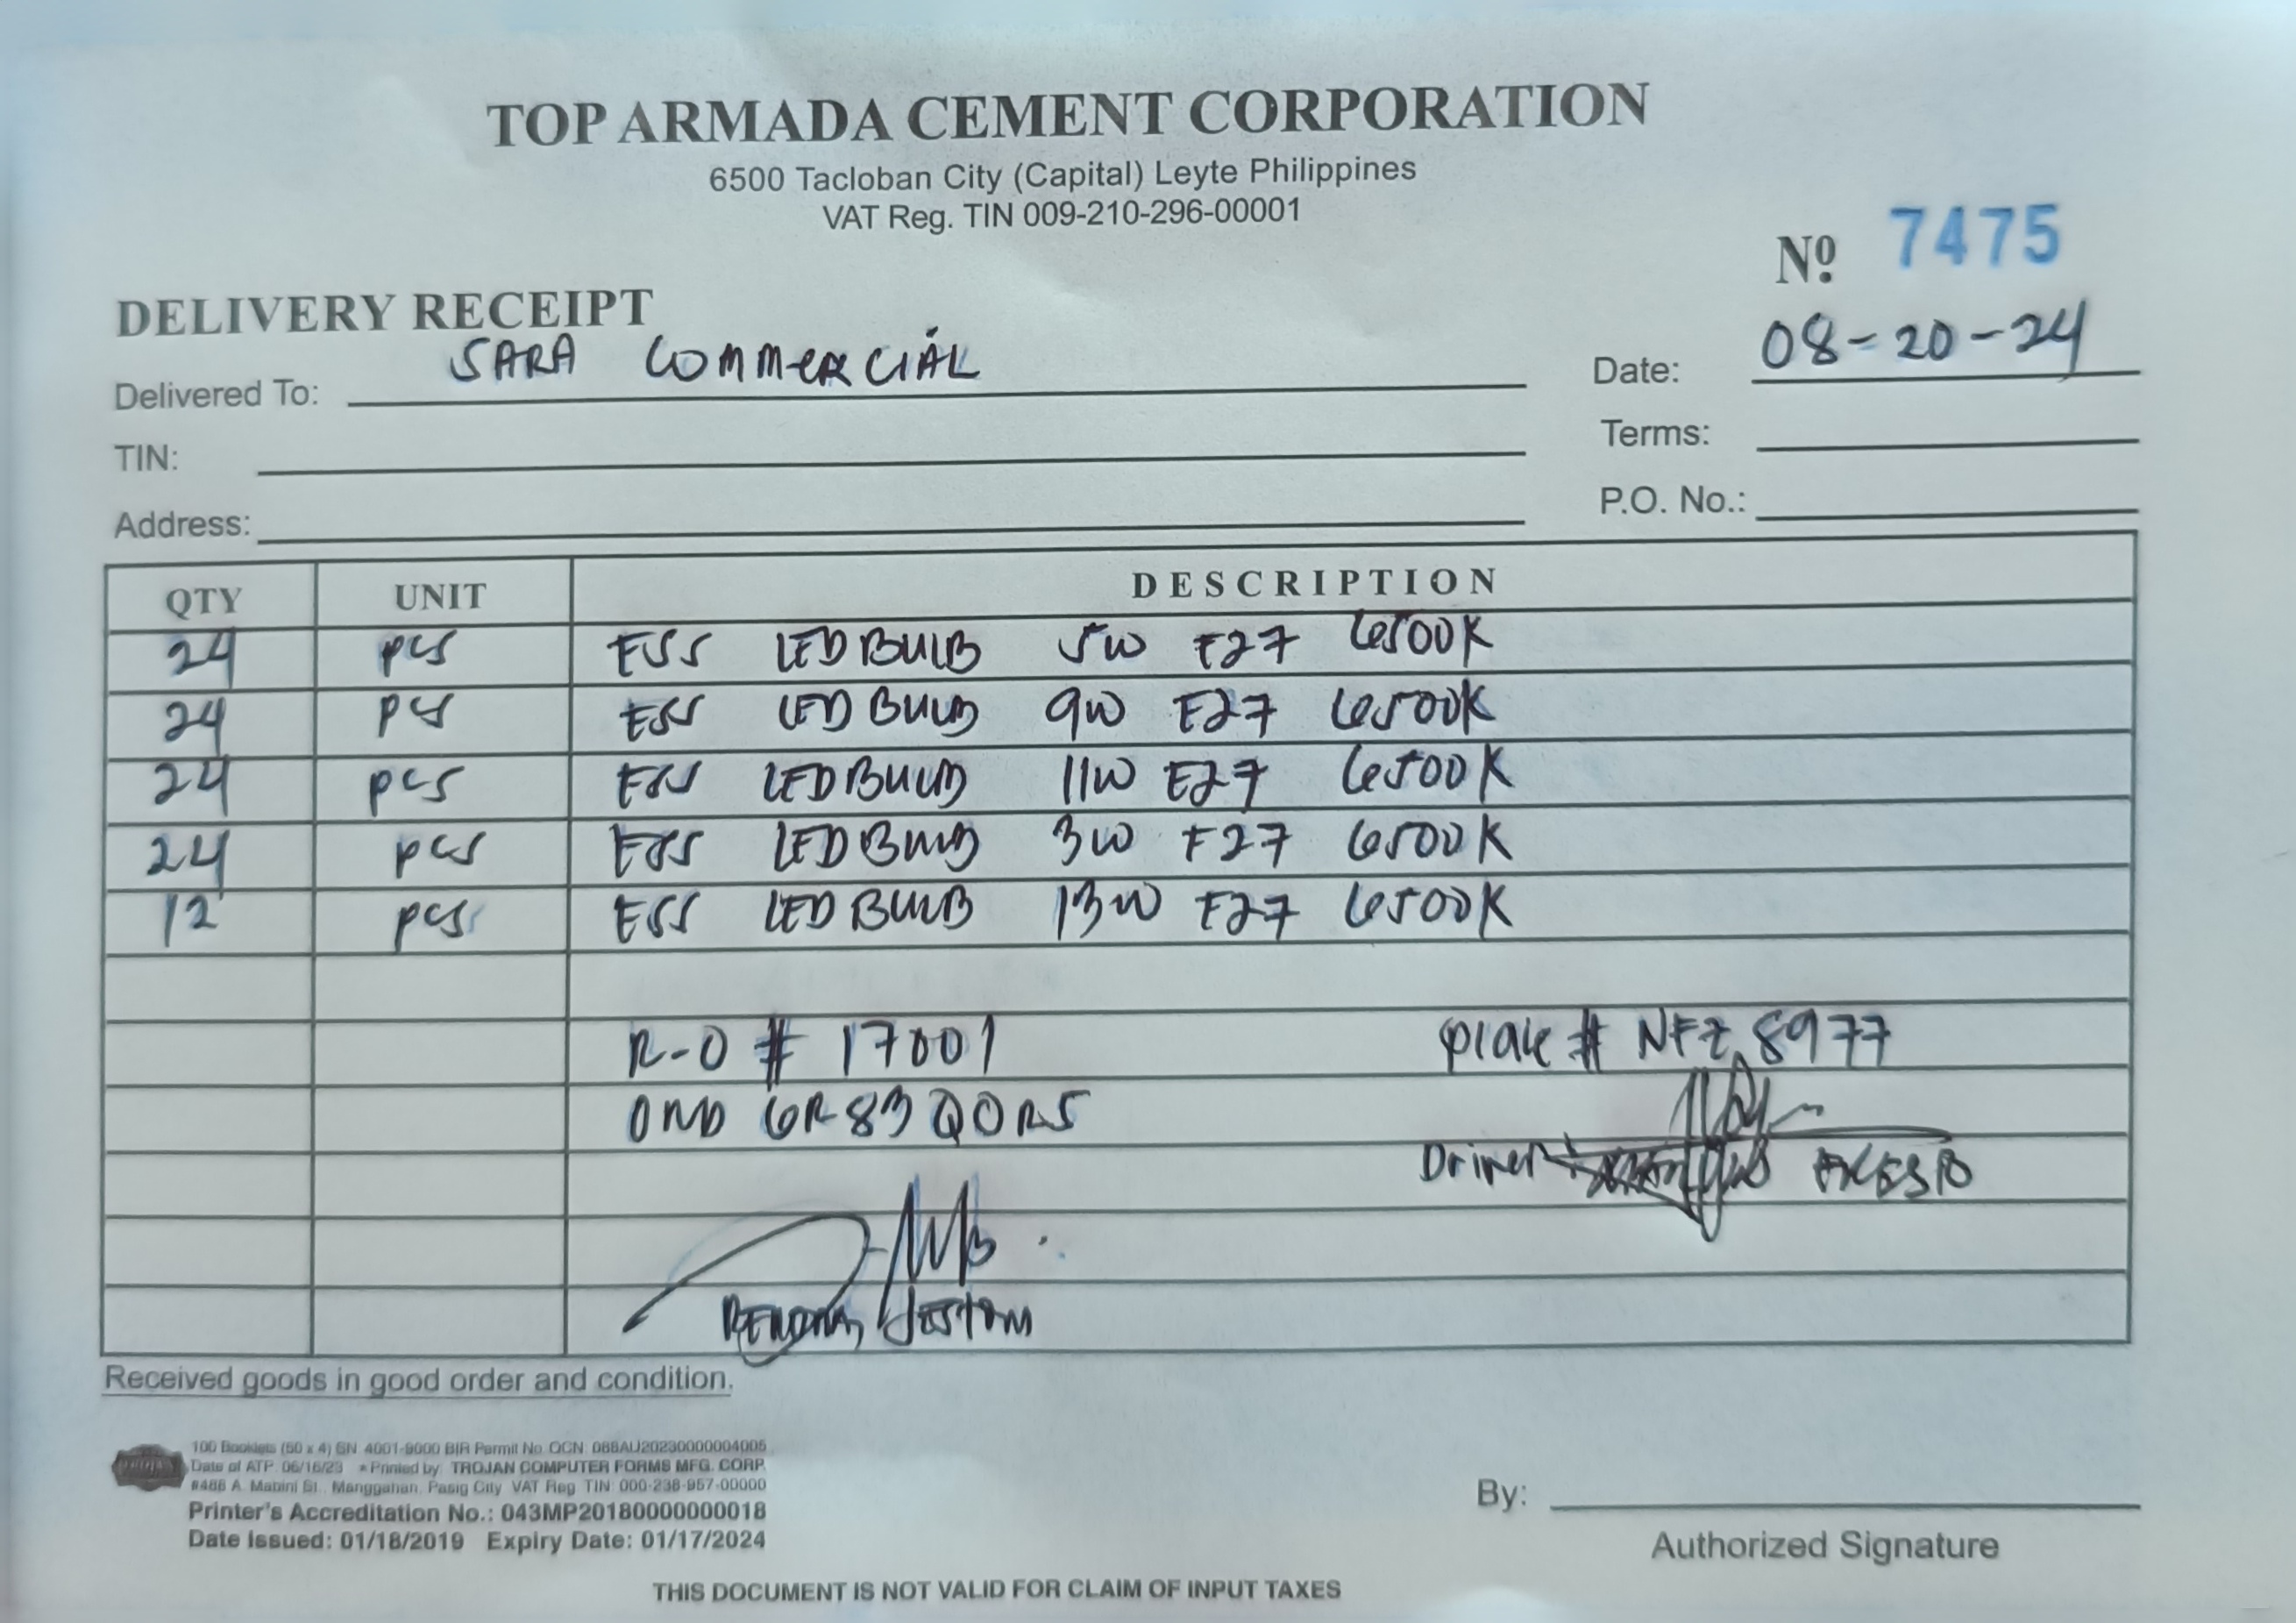 TOP ARMADA CEMENT CORPORATION
6500 Tacloban City (Capital) Leyte Philippines
VAT Reg. TIN 009-210-296-00001
Nº 7475
DELIVERY RECEIPT
Delivered To: SARA COMMERCIAL
Date: 08-20-24
TIN:
Terms:
Address:
P.O. No.:
QTY UNIT DESCRIPTION
24 pcs ESS LED BULB 5W E27 6500K
24 pcs ESS LED BULB 9W E27 6500K
24 pcs ESS LED BULB 11W E27 6500K
24 pcs ESS LED BULB 3W E27 6500K
12 pcs ESS LED BULB 13W E27 6500K
R-O # 17001 plate # NFZ 8977
OND 6R83QORS
Driver
Received goods in good order and condition.
100 Booklets (50 x 4) SN: 4001-9000 BIR Permit No. OCN: 088AU20230000004005
Date of ATP: 06/16/23 * Printed by: TROJAN COMPUTER FORMS MFG. CORP.
#486 A. Mabini St., Manggahan, Pasig City VAT Reg. TIN: 000-238-957-00000
Printer's Accreditation No.: 043MP20180000000018
Date Issued: 01/18/2019 Expiry Date: 01/17/2024
By:
Authorized Signature
THIS DOCUMENT IS NOT VALID FOR CLAIM OF INPUT TAXES